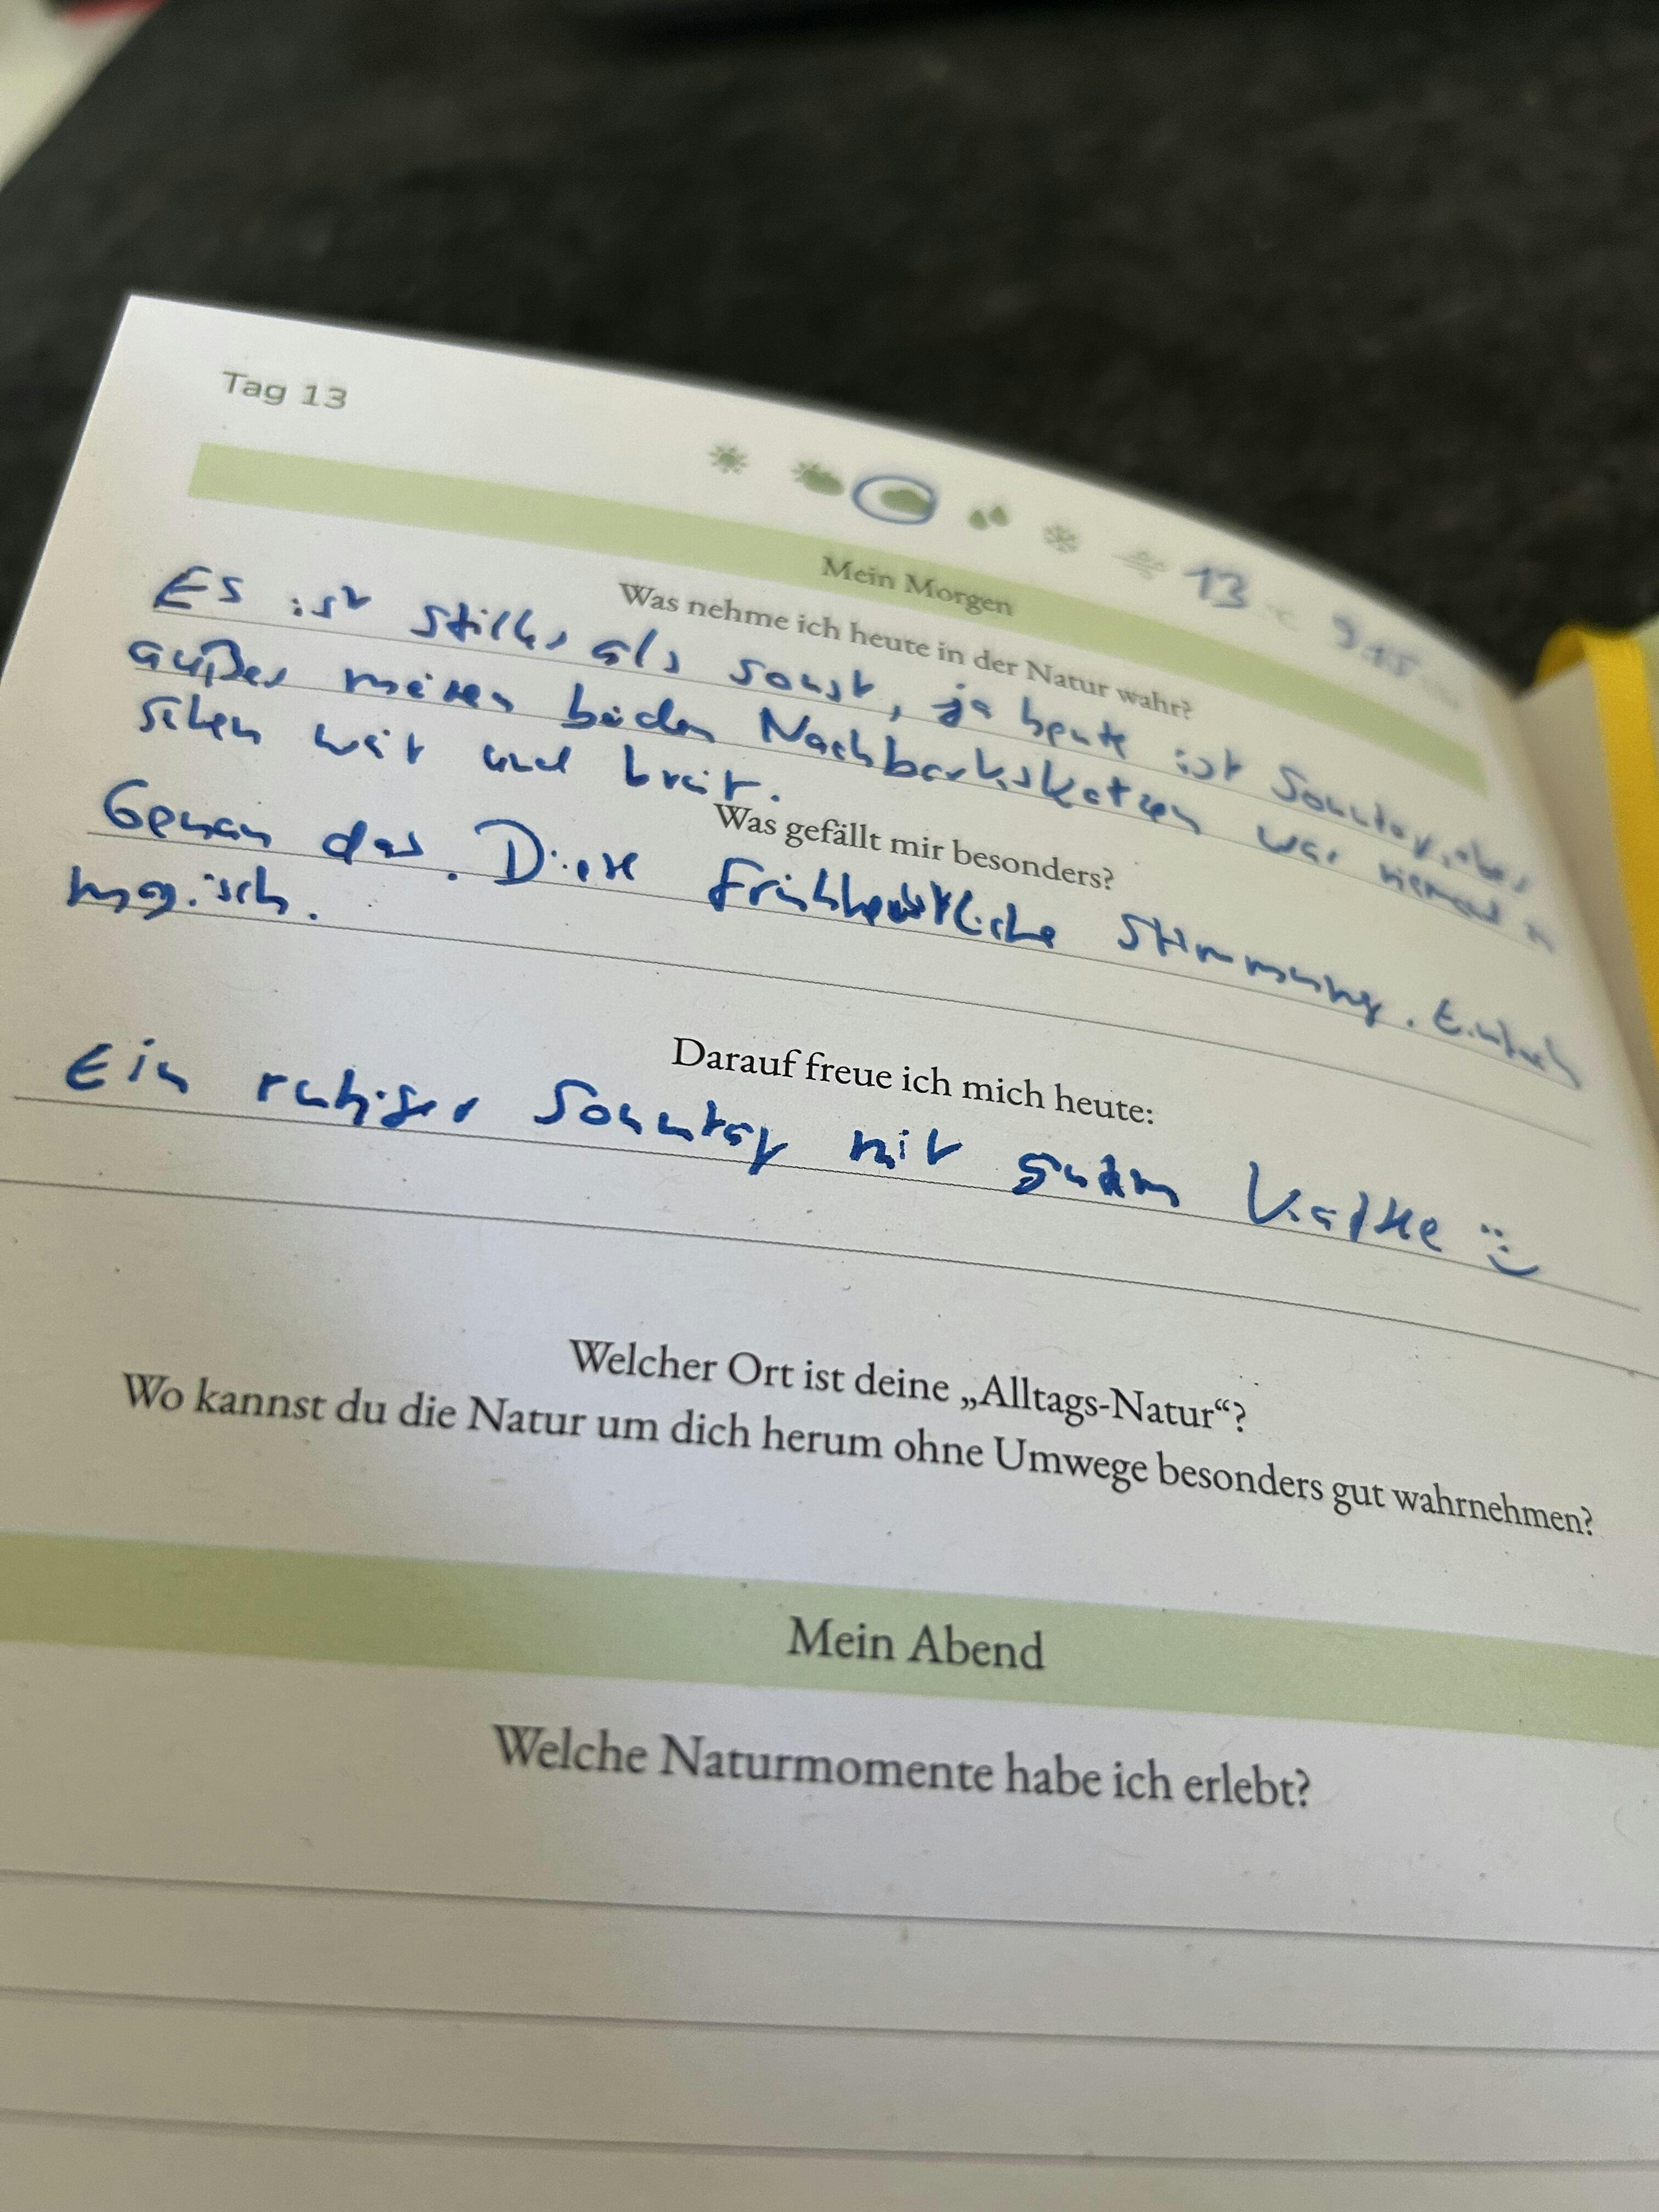 Tag 13
13 °C 9:15
Mein Morgen
Was nehme ich heute in der Natur wahr?
Es ist stiller als sonst, ja heute ist Sonntag, aber
außer meinen beiden Nachbarskatzen war niemand zu
sehen weit und breit.
Was gefällt mir besonders?
Genau das. Diese frühherbstliche Stimmung. Einfach
magisch.
Darauf freue ich mich heute:
Ein ruhiger Sonntag mit gutem
Welcher Ort ist deine „Alltags-Natur“?
Wo kannst du die Natur um dich herum ohne Umwege besonders gut wahrnehmen?
Mein Abend
Welche Naturmomente habe ich erlebt?